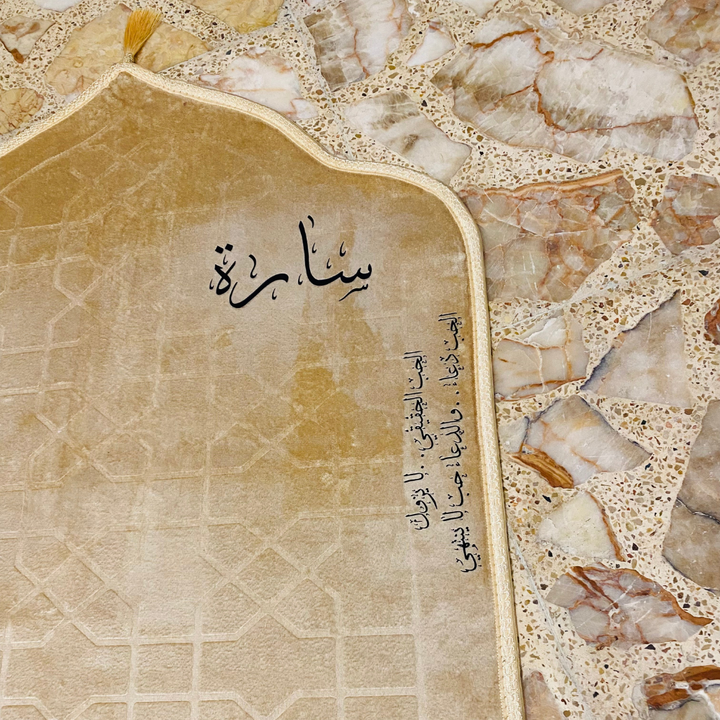 سارة
الحب دعاء .. والدعاء حب لا ينتهي
الحب الحقيقي .. لا يزول